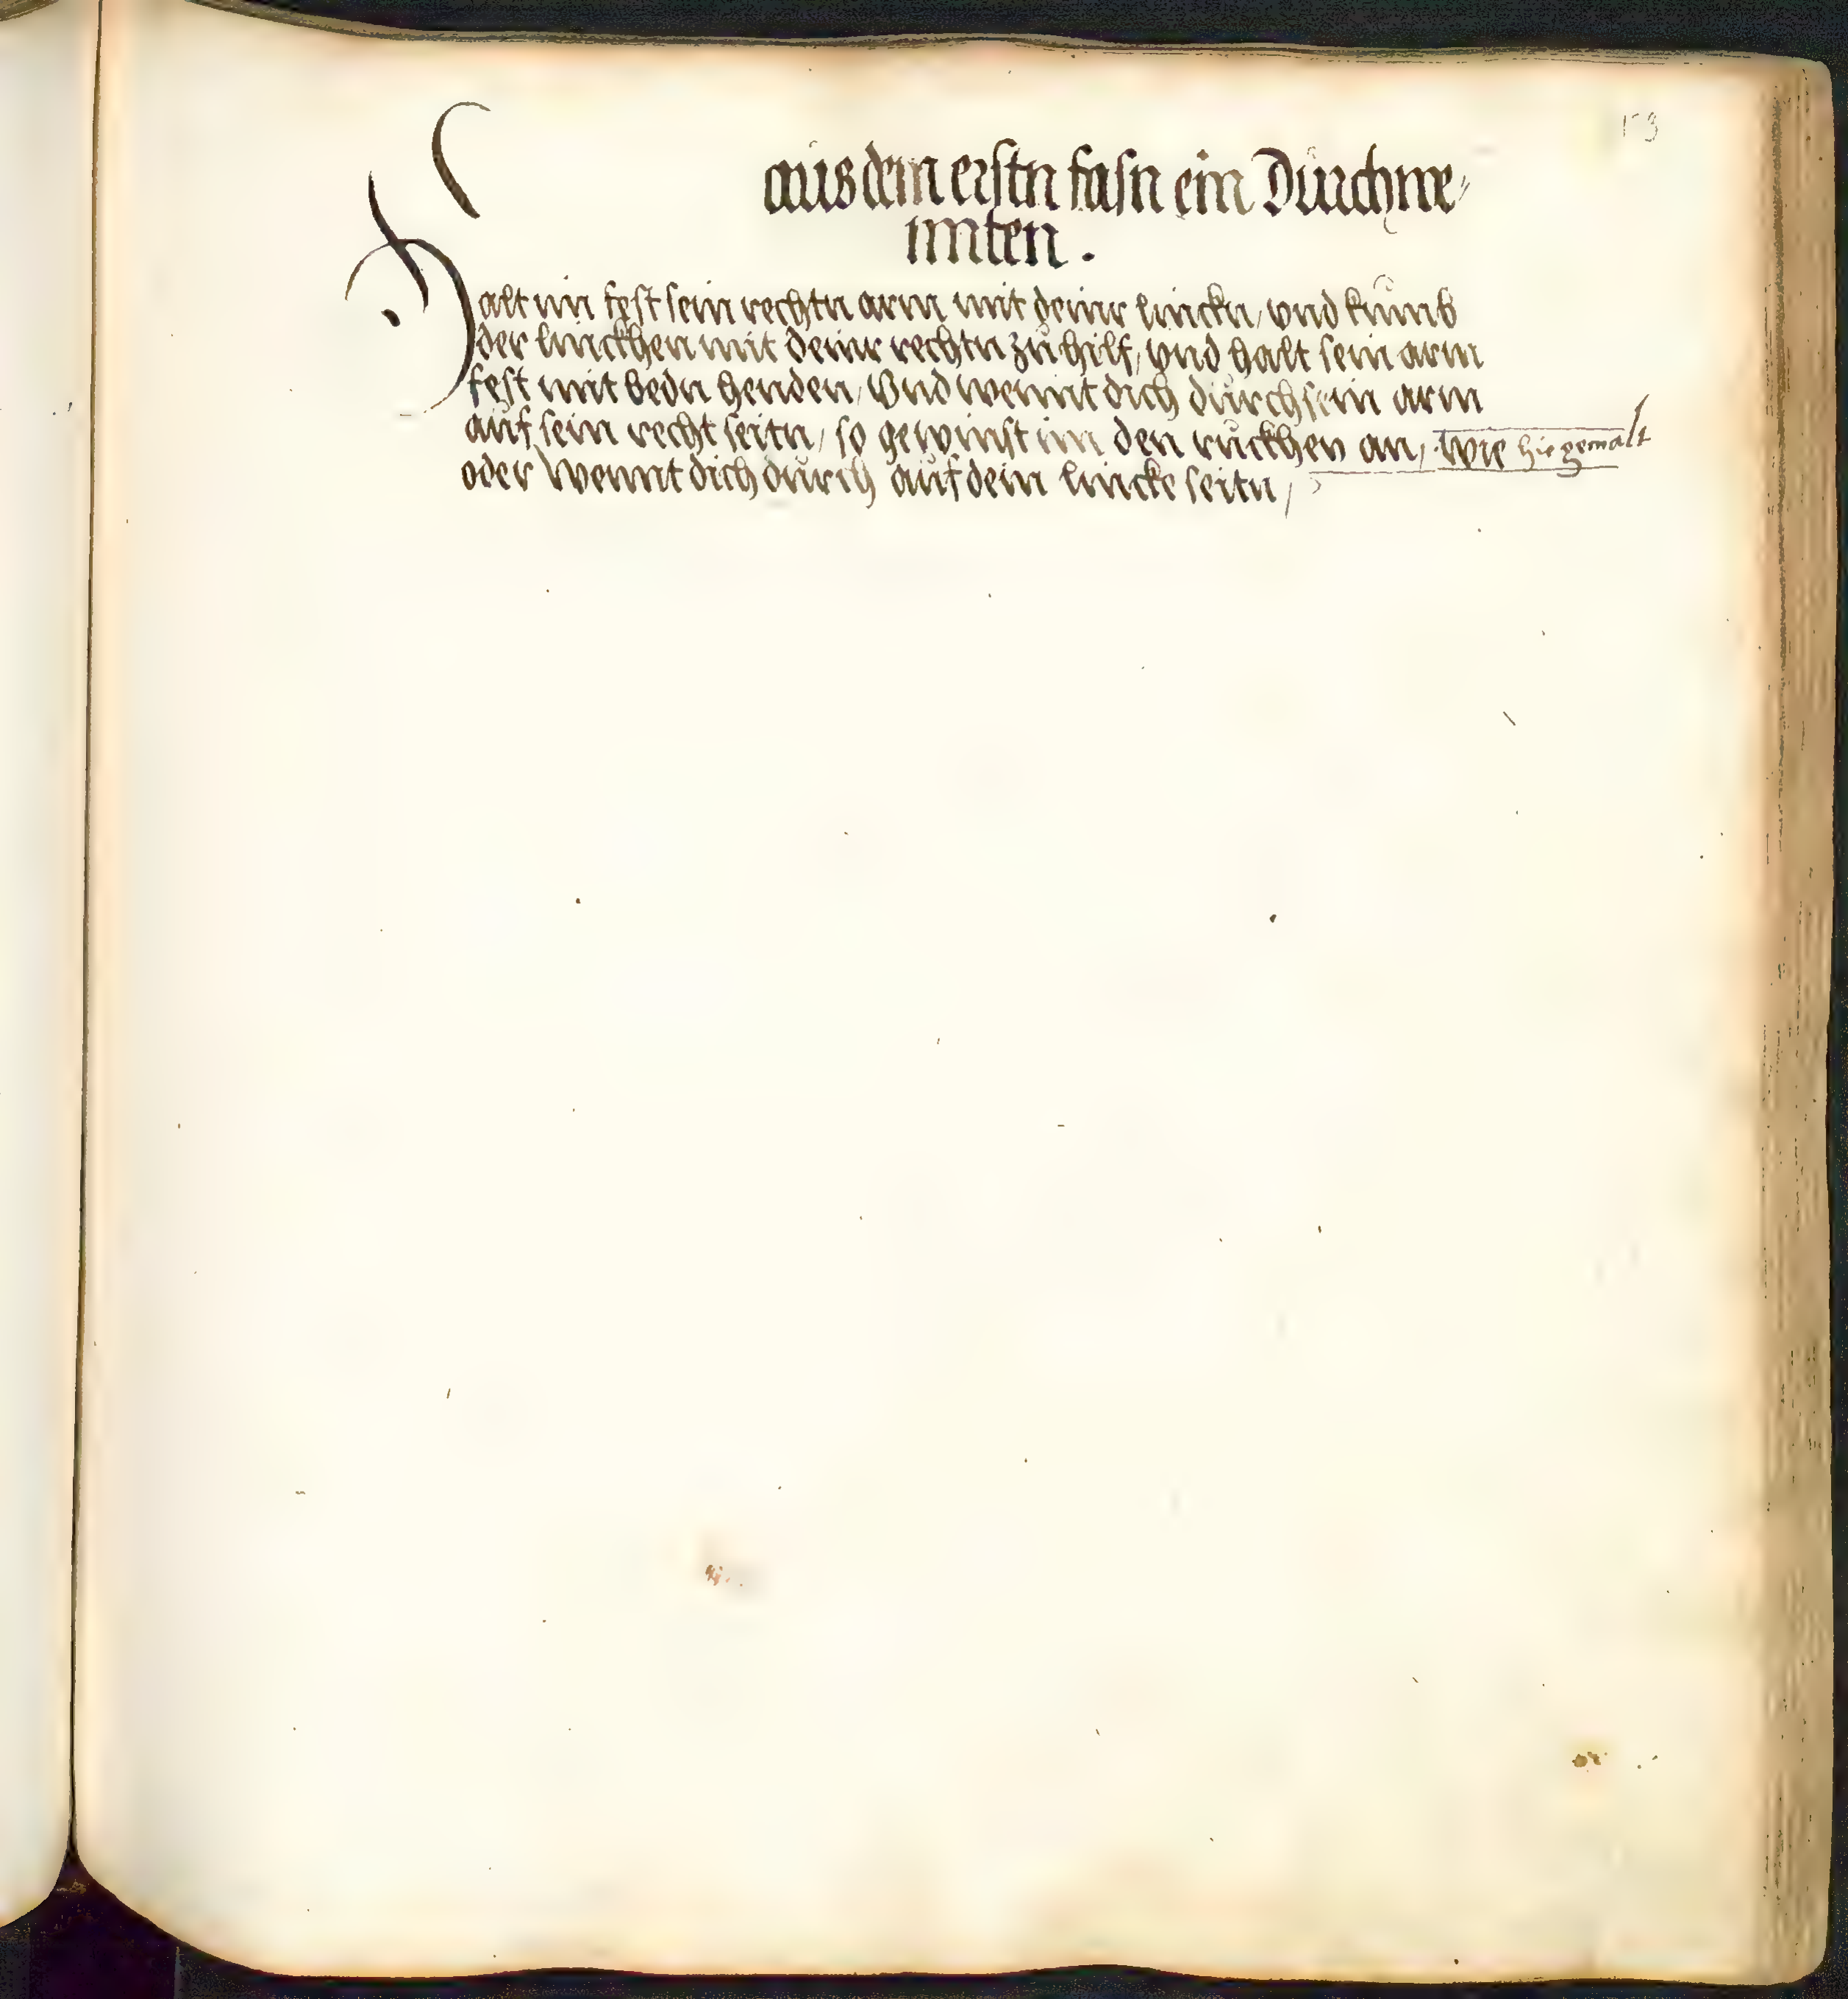 153
aus dem erstn fasn ein Durchwe⸗
nnten .
Halt im fest sein rechtn arm mit deinr linckn, vnd kumb
der linckhen mit deinr rechtn zu hilf, vnd halt sein arm
fest mit bedn henden, Vnd wennt dich durch sein arm
auf sein recht seitn, so gewinst im den ruckhen an, wie hie gemalt
oder Wennt dich durch auf dein lincke seitn,